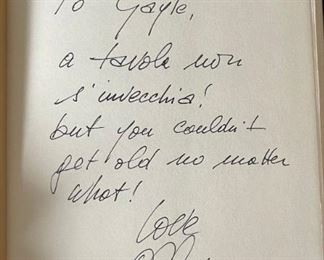 To Gayle,
a tavola non
s'invecchia!
but you couldn't
get old no matter
what!
Love